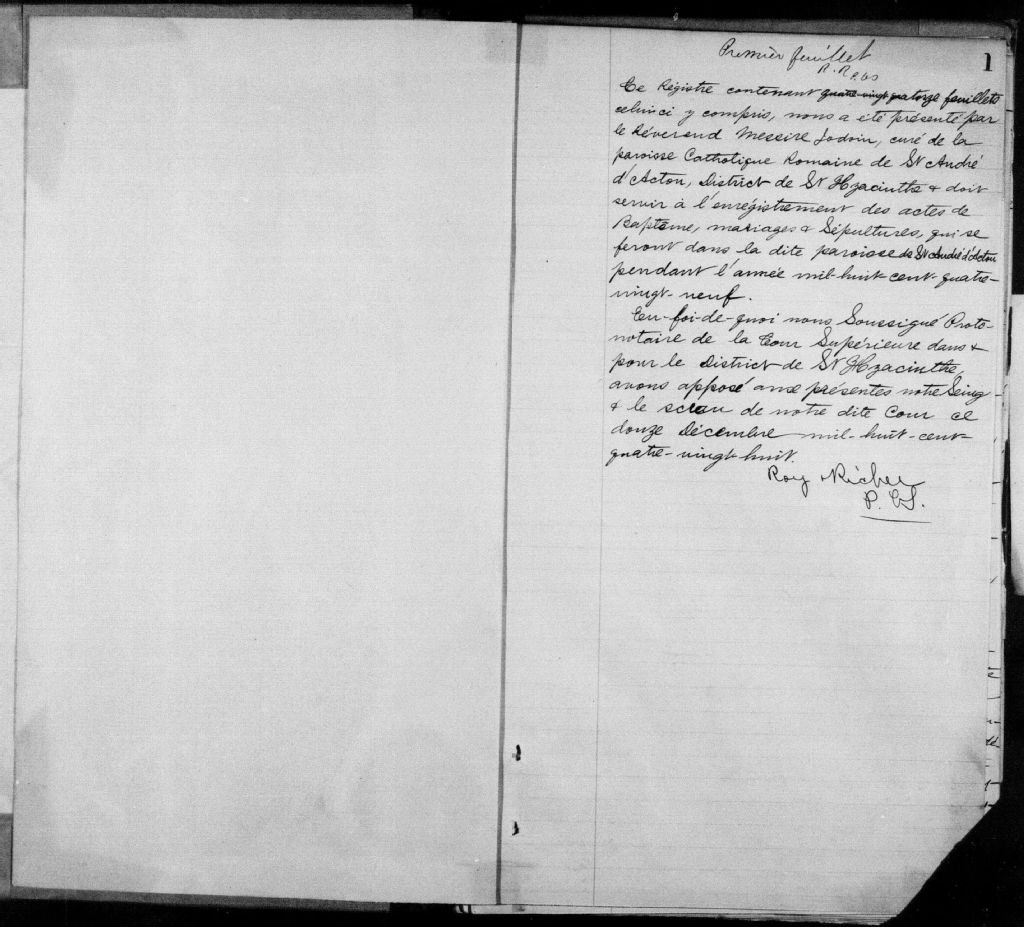 Premier feuillet
1
R. R. P. C. S
Ce Régistre contenant quatre-vingt quatorze feuillets
celui ci y compris, nous a été présenté par
le Révérend Messire Jodoin, curé de la
paroisse Catholique Romaine de St André
d'Acton, District de St Hyacinthe & doit
servir à l'enrégistrement des actes de
Baptême, mariages & Sépultures, qui se
feront dans la dite paroisse de St André d'Acton
pendant l'année mil-huit-cent-quatre-
vingt-neuf.
En-foi-de-quoi nous Soussigné Proto-
notaire de la Cour Supérieure dans &
pour le District de St Hyacinthe,
avons apposé aux présentes notre Seing
& le sceau de notre dite Cour ce
douze Décembre mil-huit-cent-
quatre-vingt-huit.
Roy & Richer
P. C. S.